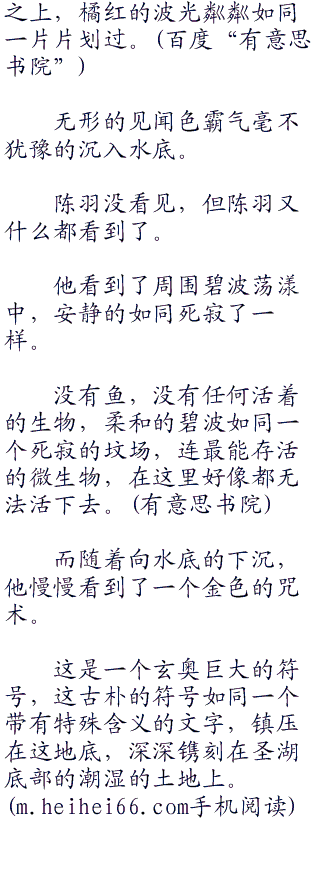 之上，橘红的波光粼粼如同
一片片划过。(百度“有意思
书院”)
无形的见闻色霸气毫不
犹豫的沉入水底。
陈羽没看见，但陈羽又
什么都看到了。
他看到了周围碧波荡漾
中，安静的如同死寂了一
样。
没有鱼，没有任何活着
的生物，柔和的碧波如同一
个死寂的坟场，连最能存活
的微生物，在这里好像都无
法活下去。(有意思书院)
而随着向水底的下沉，
他慢慢看到了一个金色的咒
术。
这是一个玄奥巨大的符
号，这古朴的符号如同一个
带有特殊含义的文字，镇压
在这地底，深深镌刻在圣湖
底部的潮湿的土地上。
(m.heihei66.com手机阅读)